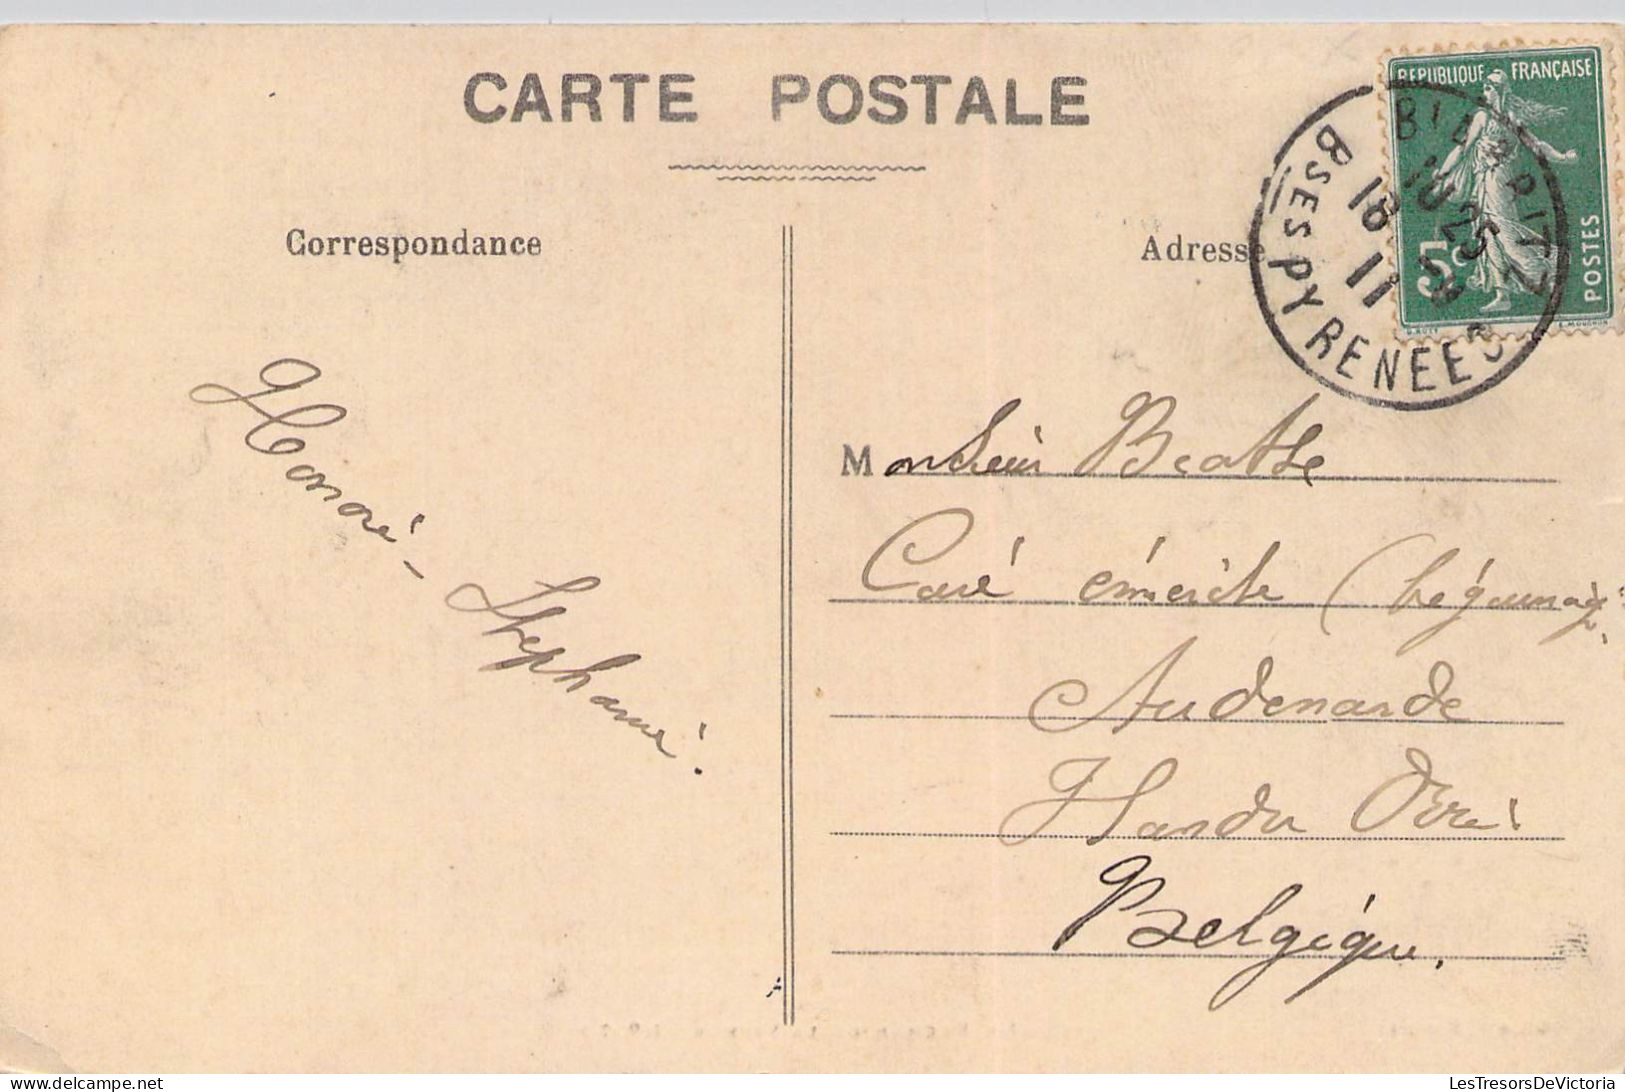 CARTE POSTALE
Correspondance
Adresse
REPUBLIQUE FRANÇAISE
5c
POSTES
E. MOUCHON
BIARRITZ
18 25
18 11
BSES PYRENEES
Honoré - Stephanie
Monsieur
Curé émérite
Audenarde
Belgique.
LesTresorsDeVictoria
delcampe.net